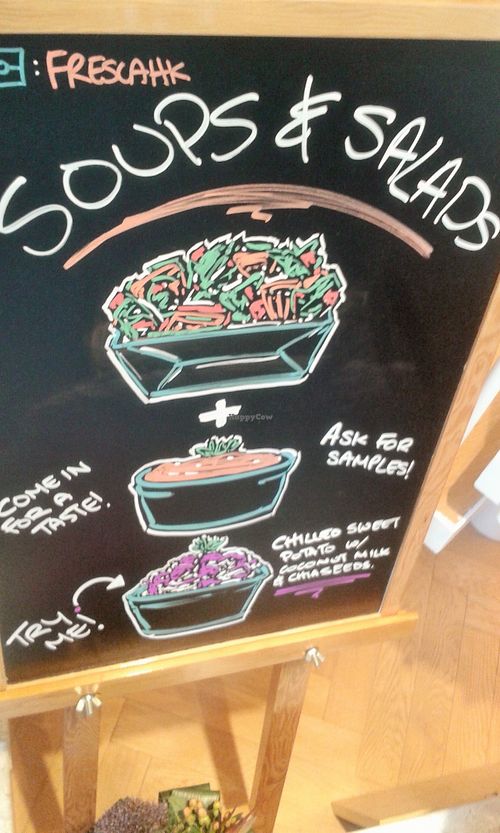 : FRESCAHK
SOUPS & SALADS
+
HappyCow
ASK FOR
SAMPLES!
COME IN
FOR A
TASTE!
CHILLED SWEET
POTATO W/
COCONUT MILK
& CHIASEEDS.
TRY
ME!